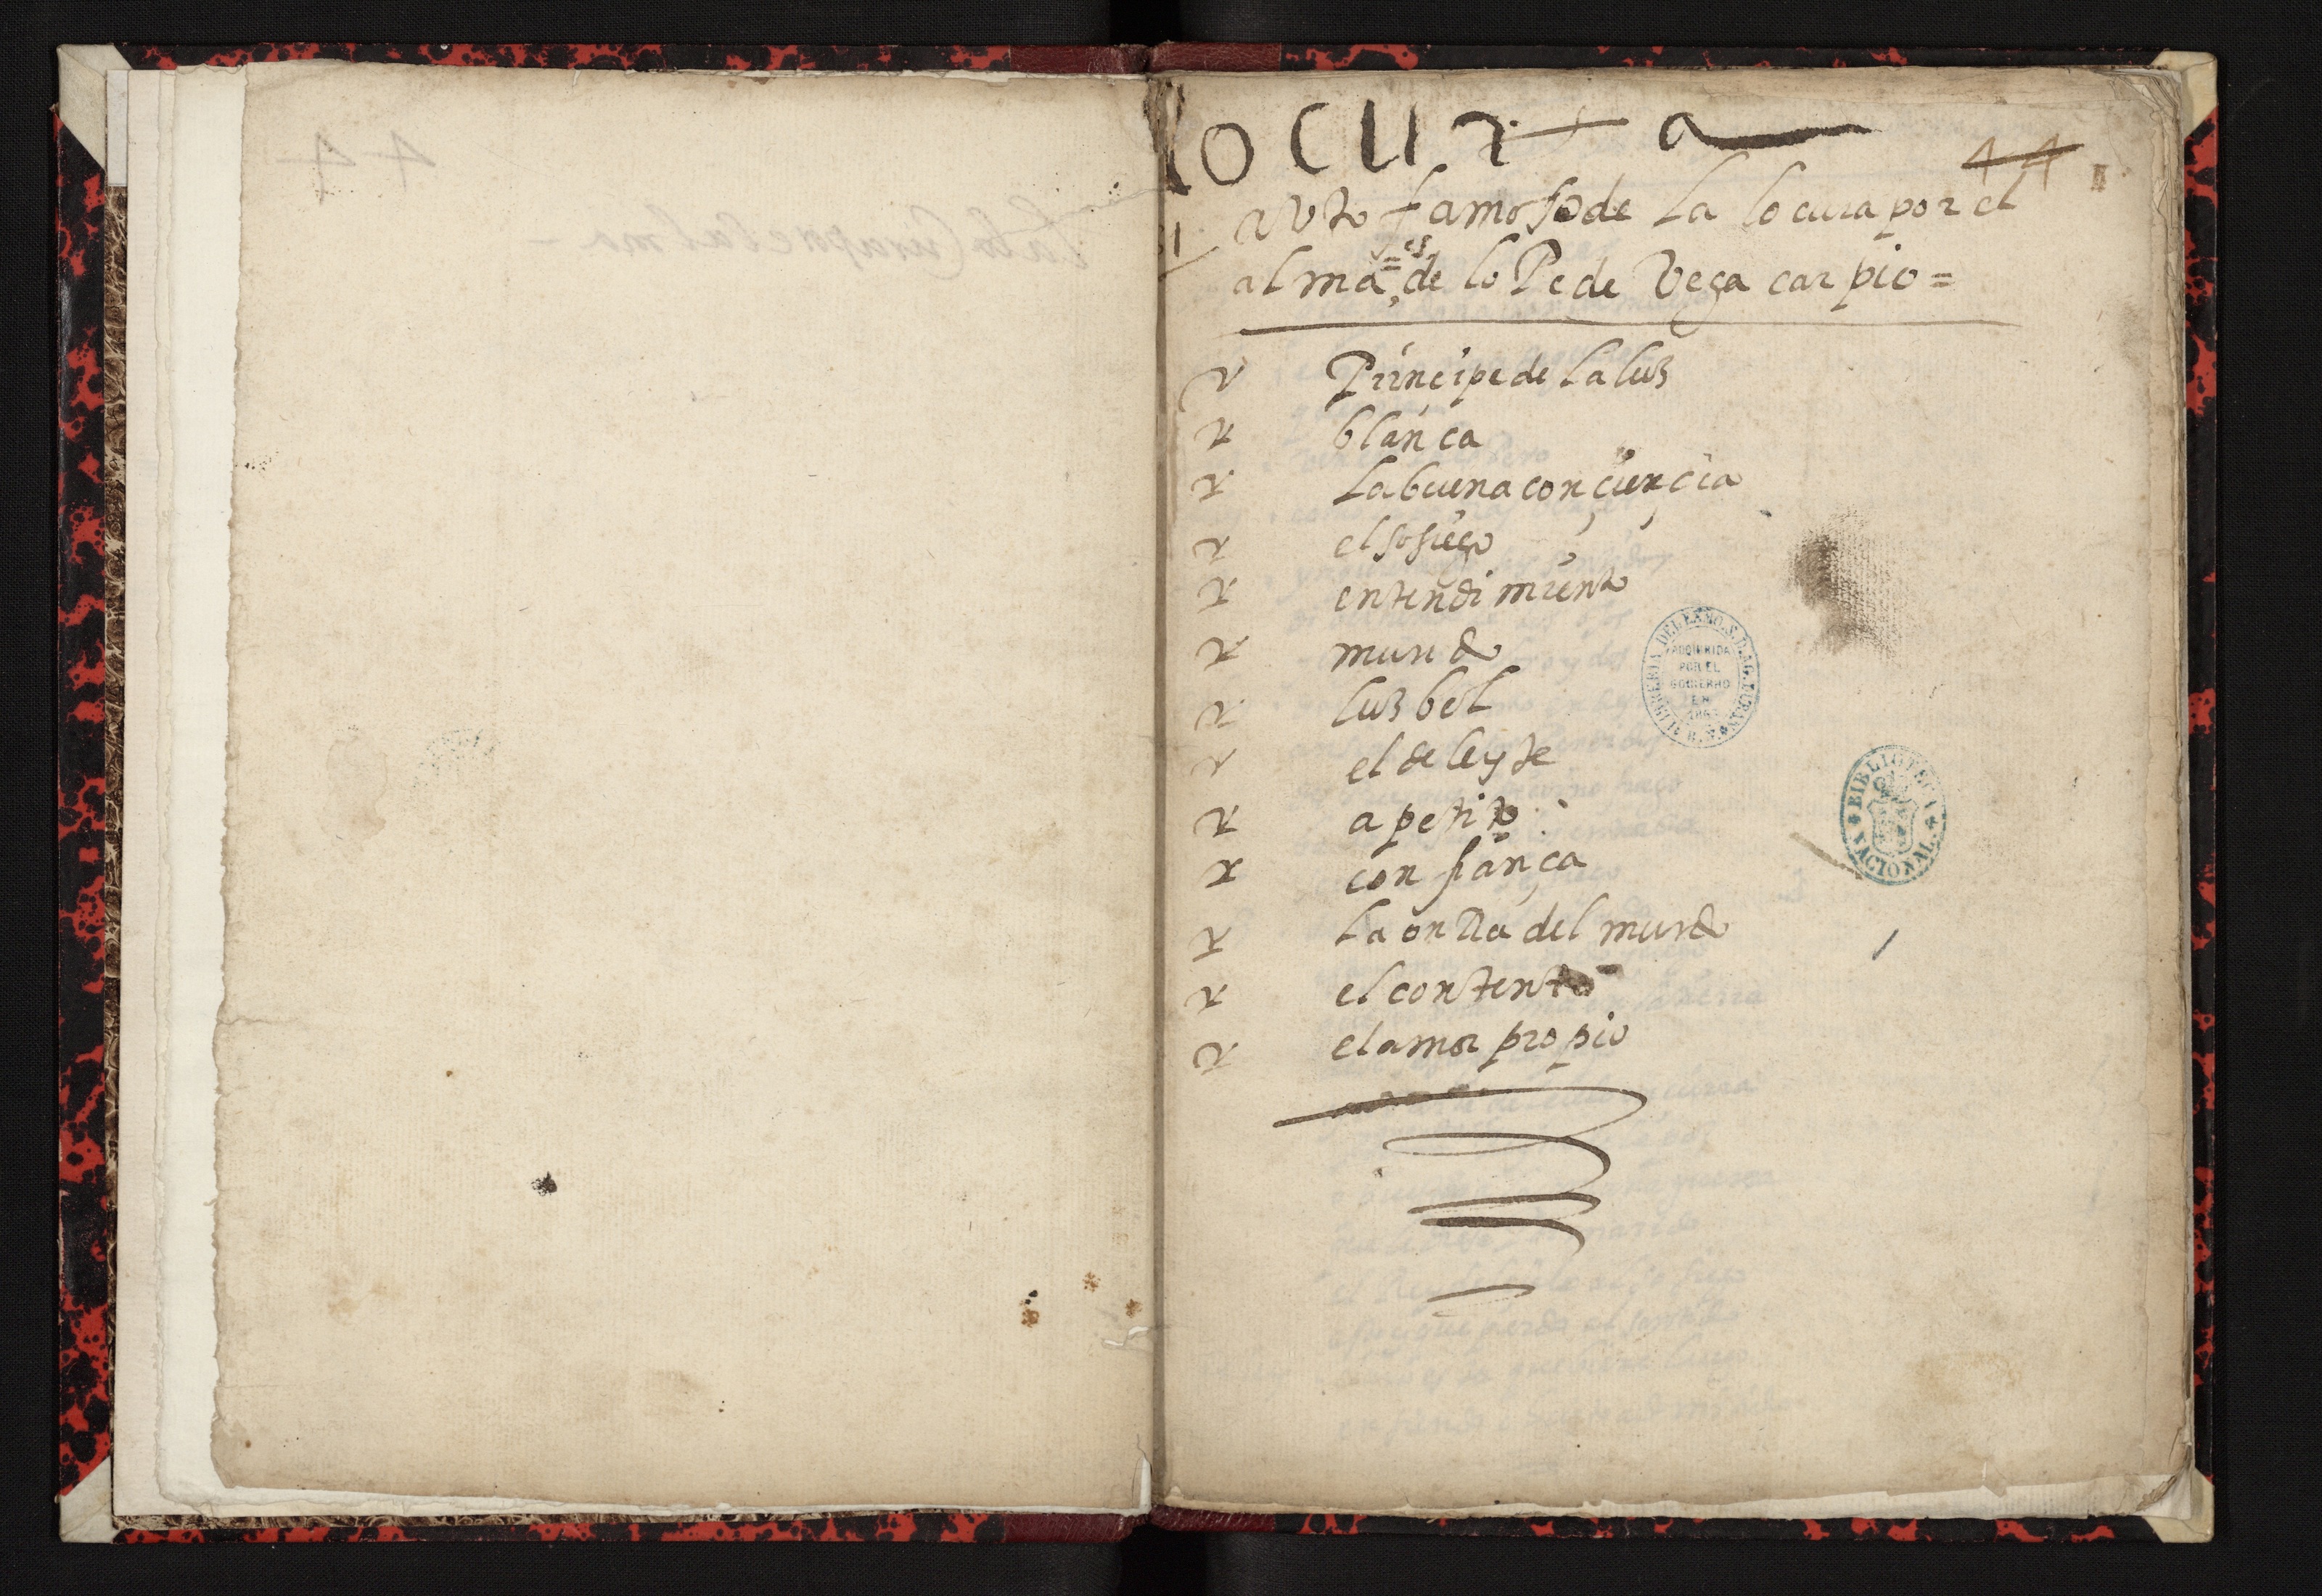 locura
44
auto famoso de la locura por el
alma es de lope de Vega carpio =
Principe de la luz
blanca
la buena conçiençia
el sosiego
entendimiento
mundo
luzbel
el deleyte
apetito
confiança
la onRa del mundo
el contento
el amor propio
LIBRERIA DEL EXMO. S. D. AG. DURAN
ADQUIRIDA
POR EL
GOBIERNO
EN
BIBLIOTECA NACIONAL